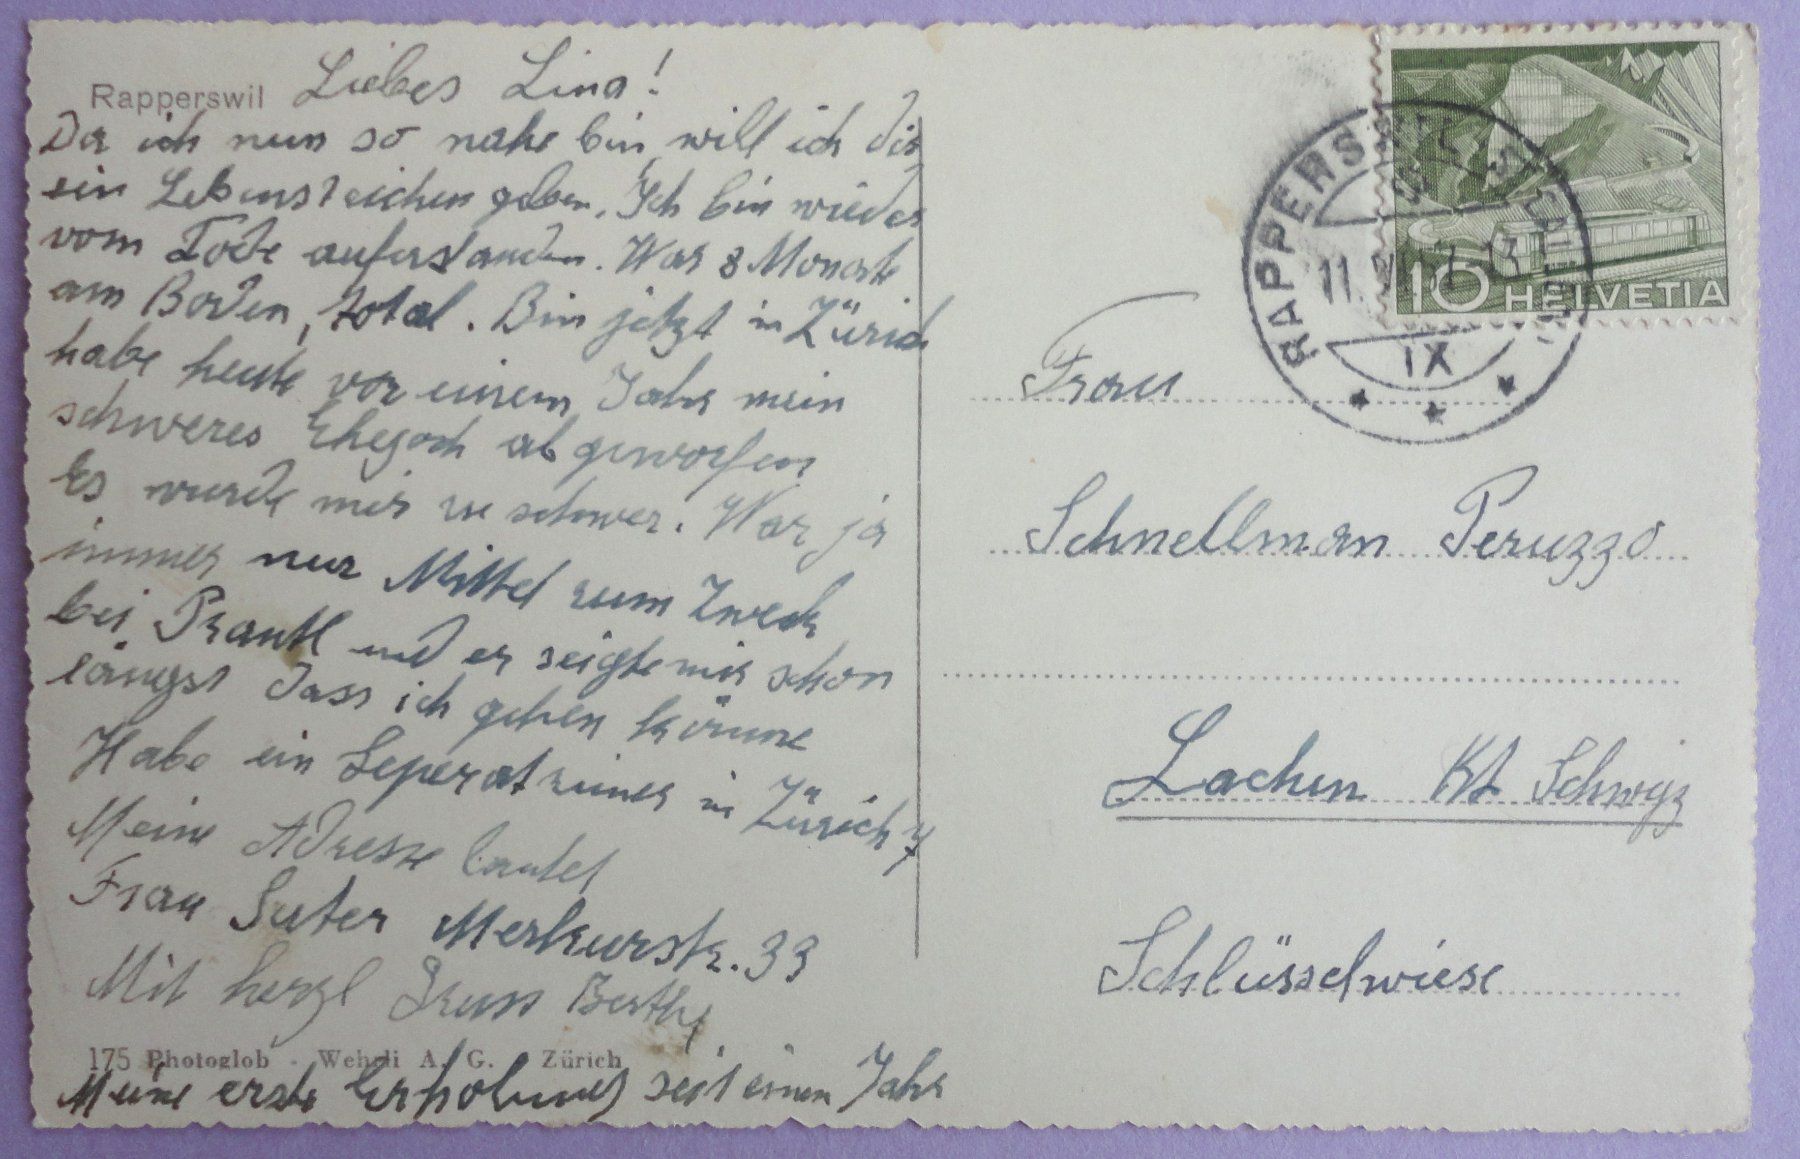 Rapperswil
Liebes Lina!
Da ich nun so nahe bin, will ich dir
ein Lebenszeichen geben. Ich bin wieder
vom Tode auferstanden. War 8 Monate
am Boden, total. Bin jetzt in Zürich
habe heute vor einem Jahr mein
schweres Ehejoch abgeworfen
Es wurde mir zu schwer. War ja
immer nur Mittel zum Zweck
bei Prantl und er zeigte mir schon
längst dass ich gehen könne
Habe ein Seperatzimer in Zürich 7
Meine Adresse lautet
Frau Suter Merkurstr. 33
Mit herzl Gruss Berthy
175 Photoglob - Wehrli A. G. Zürich
Meine erste Erholung seit einem Jahr
10 HELVETIA
RAPPERSWIL
IX
Frau
Schnellman Peruzzo
Lachen Kt Schwyz
Schlüsselwiese